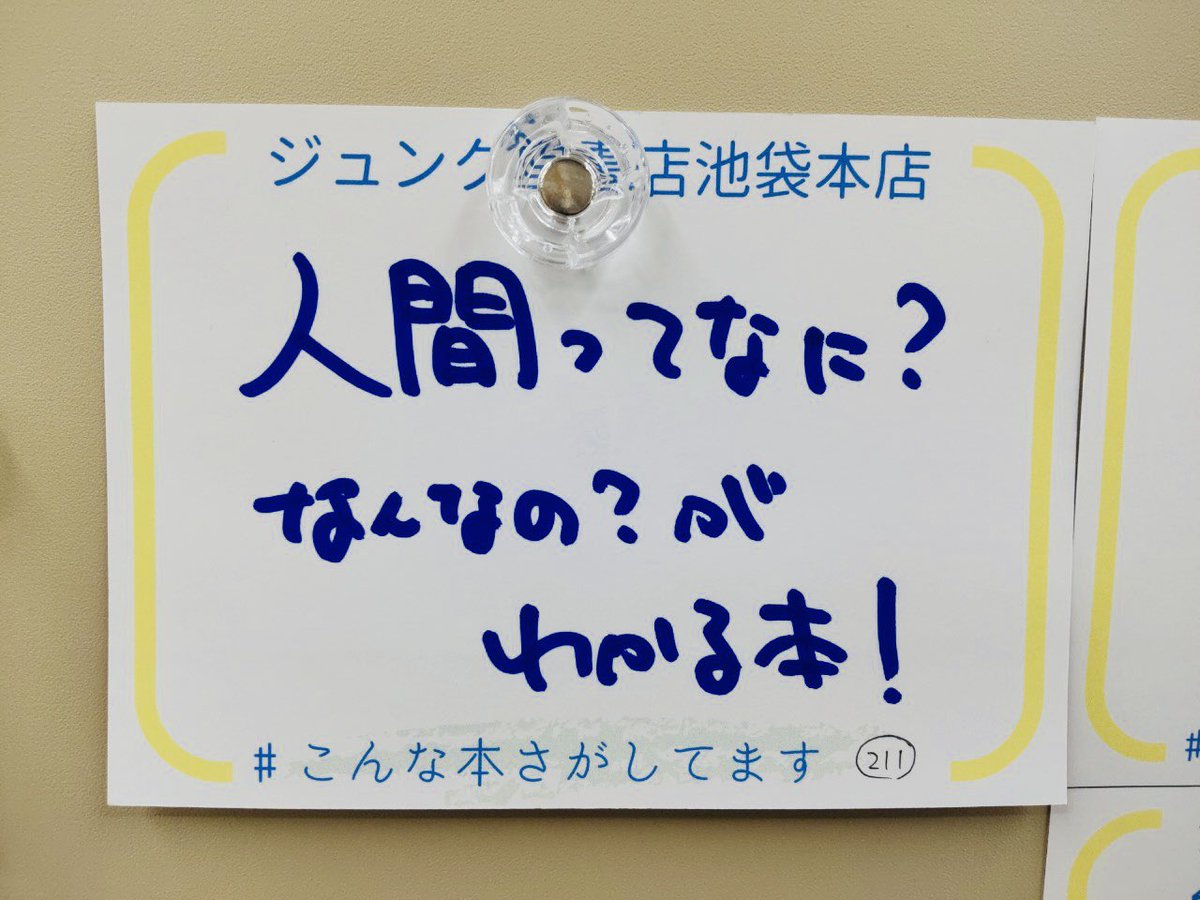 ジュンク 店池袋本店
人間ってなに?
なんなの?が
わかる本!
#こんな本さがしてます 211
#